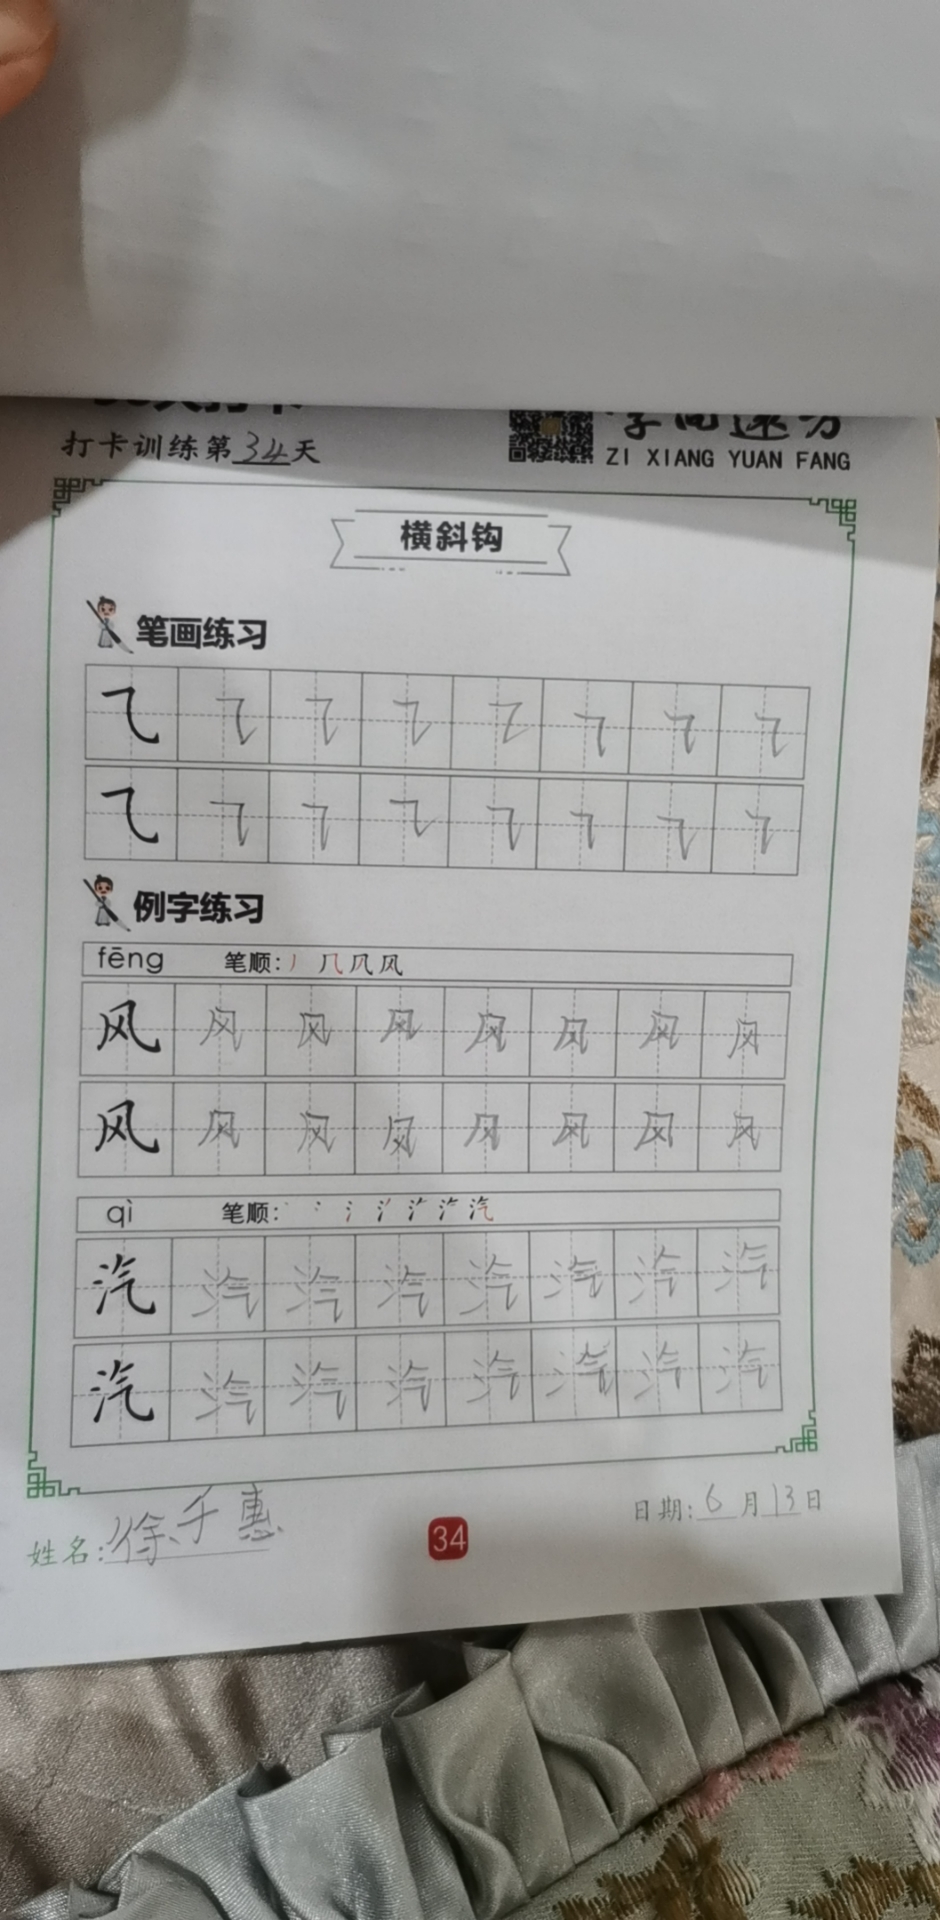 打卡训练第34天
ZI XIANG YUAN FANG
横斜钩
笔画练习
㇈ ㇈ ㇈ ㇈ ㇈ ㇈ ㇈ ㇈
㇈ ㇈ ㇈ ㇈ ㇈ ㇈ ㇈ ㇈
例字练习
fēng 笔顺:丿 几 凨 风
风 风 风 风 风 风 风 风
风 风 风 风 风 风 风 风
qì 笔顺:
汽 汽 汽 汽 汽 汽 汽 汽
汽 汽 汽 汽 汽 汽 汽 汽
姓名:徐千惠
34
日期:6月13日